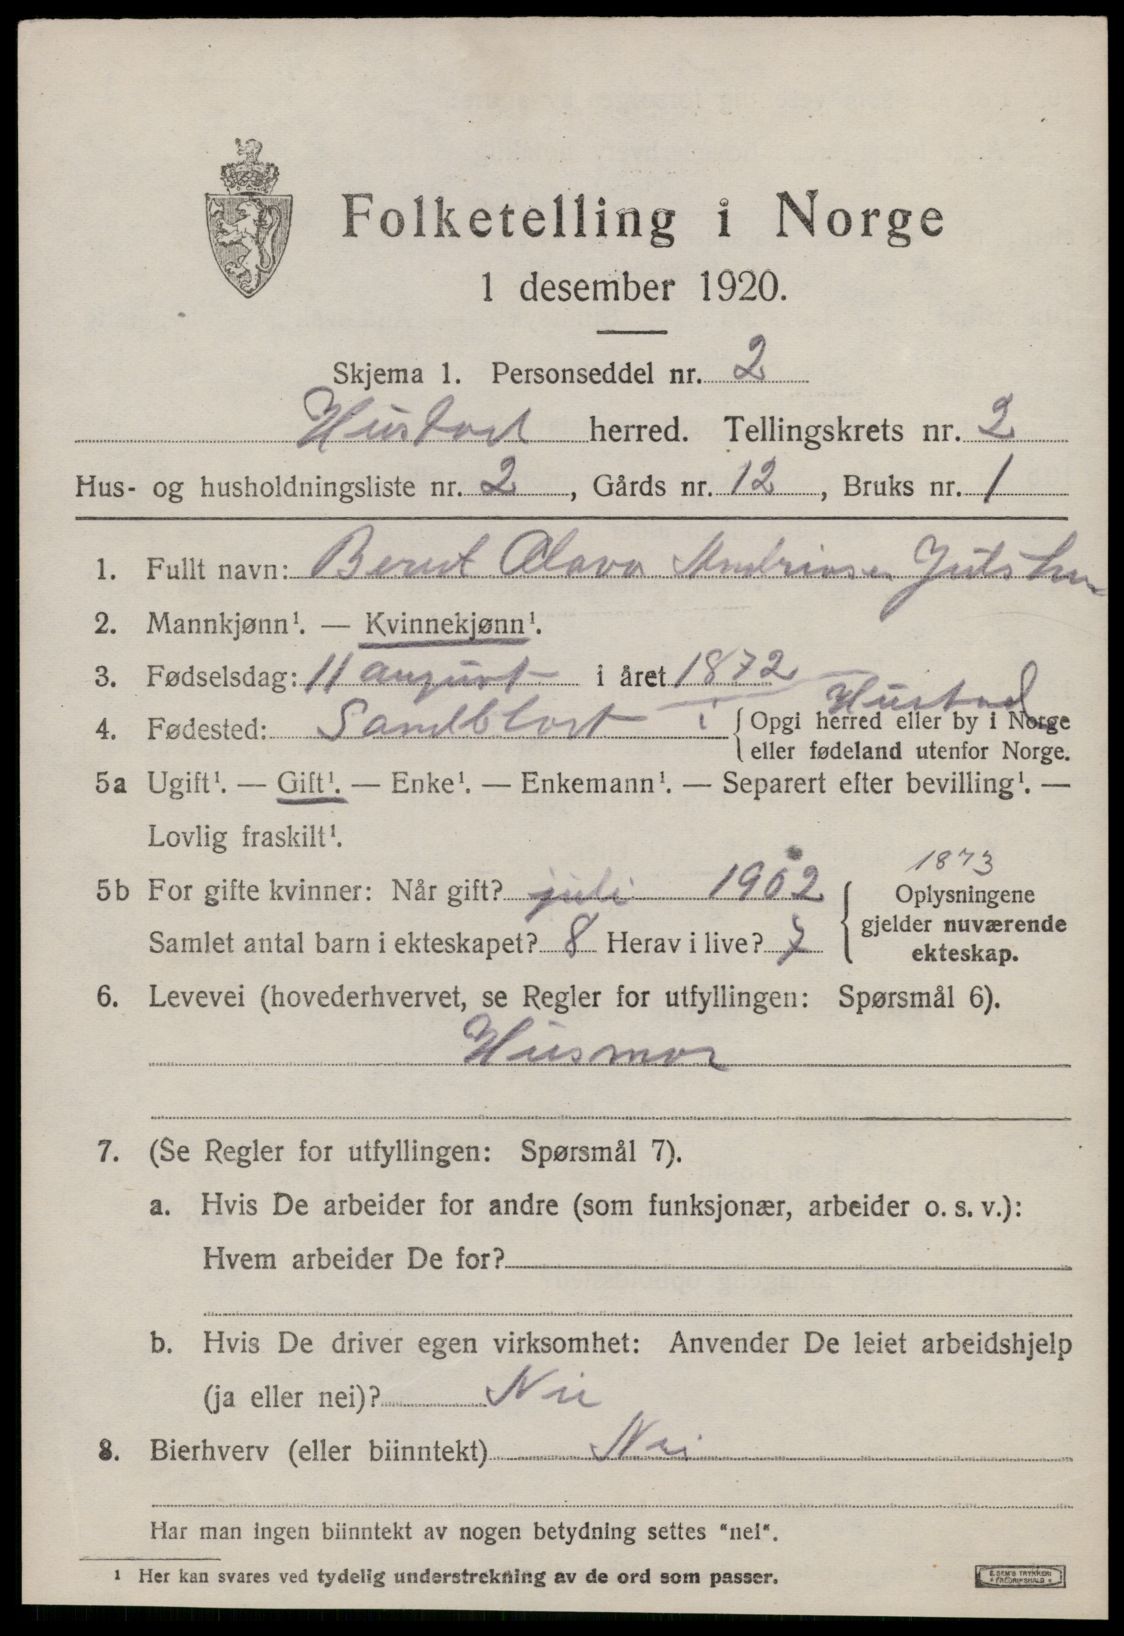 Folketelling i Norge
1 desember 1920.
Skjema 1. Personseddel nr. 2
Hustad herred. Tellingskrets nr. 2
Hus- og husholdningsliste nr. 2, Gårds nr. 12, Bruks nr. 1
1. Fullt navn: Berit Olava
2. Mannkjønn¹. — Kvinnekjønn¹.
3. Fødselsdag: 11 august i året 1872
4. Fødested: Sandblost i Hustad {Opgi herred eller by i Norge
eller fødeland utenfor Norge.
5a Ugift¹. — Gift¹. — Enke¹. — Enkemann¹. — Separert efter bevilling¹. —
Lovlig fraskilt¹.
1873
5b For gifte kvinner: Når gift? juli 1902 { Oplysningene
gjelder nuværende
Samlet antal barn i ekteskapet? 8 Herav i live? 7
ekteskap.
6. Levevei (hovederhvervet, se Regler for utfyllingen: Spørsmål 6).
Husmor
7. (Se Regler for utfyllingen: Spørsmål 7).
a. Hvis De arbeider for andre (som funksjonær, arbeider o. s. v.):
Hvem arbeider De for?
b. Hvis De driver egen virksomhet: Anvender De leiet arbeidshjelp
(ja eller nei)? Nei
8. Bierhverv (eller biinntekt) Nei
Har man ingen biinntekt av nogen betydning settes "nei".
¹ Her kan svares ved tydelig understrekning av de ord som passer.
E. SEM'S TRYKKERI
FREDRIKSHALD